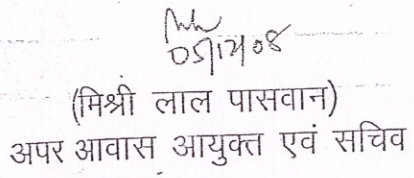 05/12/08
(मिश्री लाल पासवान)
अपर आवास आयुक्त एवं सचिव